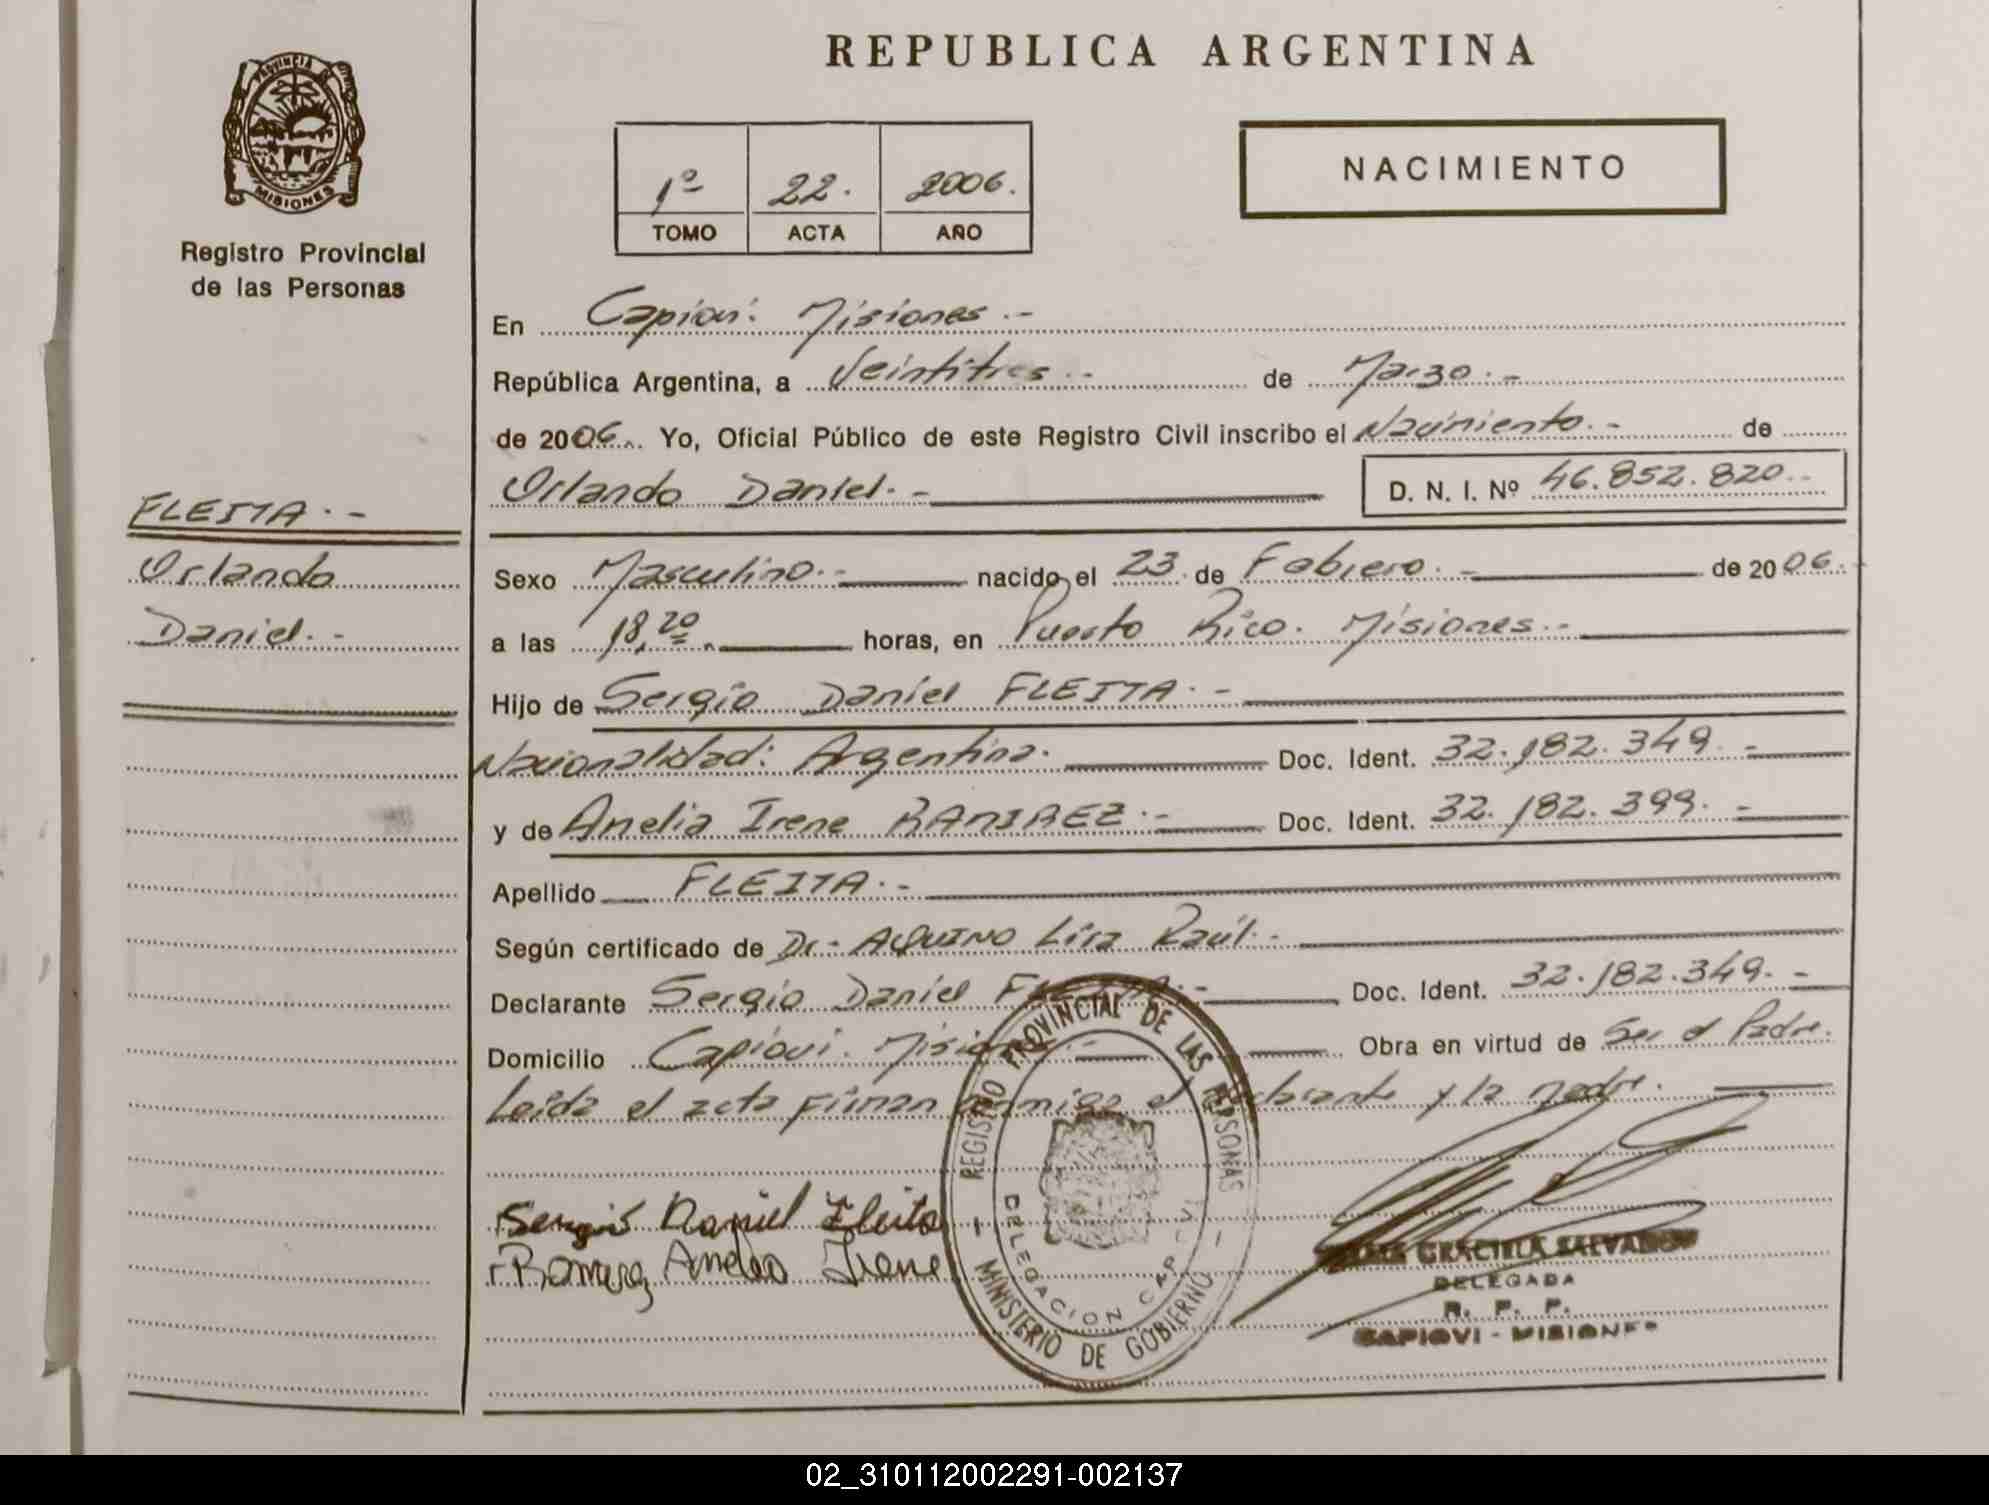 REPUBLICA ARGENTINA
PROVINCIA DE
MISIONES
Registro Provincial
de las Personas
1º 22. 2006.
TOMO ACTA AÑO
NACIMIENTO
En Capioví. Misiones.-
República Argentina, a Veintitres.- de Marzo.-
de 2006.. Yo, Oficial Público de este Registro Civil inscribo el Nacimiento.- de
Orlando Daniel.- D. N. I. Nº 46.852.820.-
FLEITA.-
Orlando
Daniel.-
Sexo Masculino.- nacido el 23. de Febrero.- de 2006.
a las 18,20 horas, en Puerto Rico. Misiones.-
Hijo de Sergio Daniel FLEITA.-
Nacionalidad: Argentina. Doc. Ident. 32.182.349.-
y de Anelia Irene RAMIREZ.- Doc. Ident. 32.182.399.-
Apellido FLEITA.-
Según certificado de Dr.- AQUINO Lira Raúl.-
Declarante Sergio Daniel FLEITA.- Doc. Ident. 32.182.349.-
Domicilio Capioví. Misiones.- Obra en virtud de Ser el Padre.
Leída el acta firman conmigo el declarante y la madre.
Sergio Daniel Fleita
Ramirez Anelia Irene
REGISTRO PROVINCIAL DE LAS PERSONAS
DELEGACION CAPIOVI
MINISTERIO DE GOBIERNO
GRACIELA SALVADOR
DELEGADA
R. P. P.
CAPIOVI - MISIONES
02_310112002291-002137